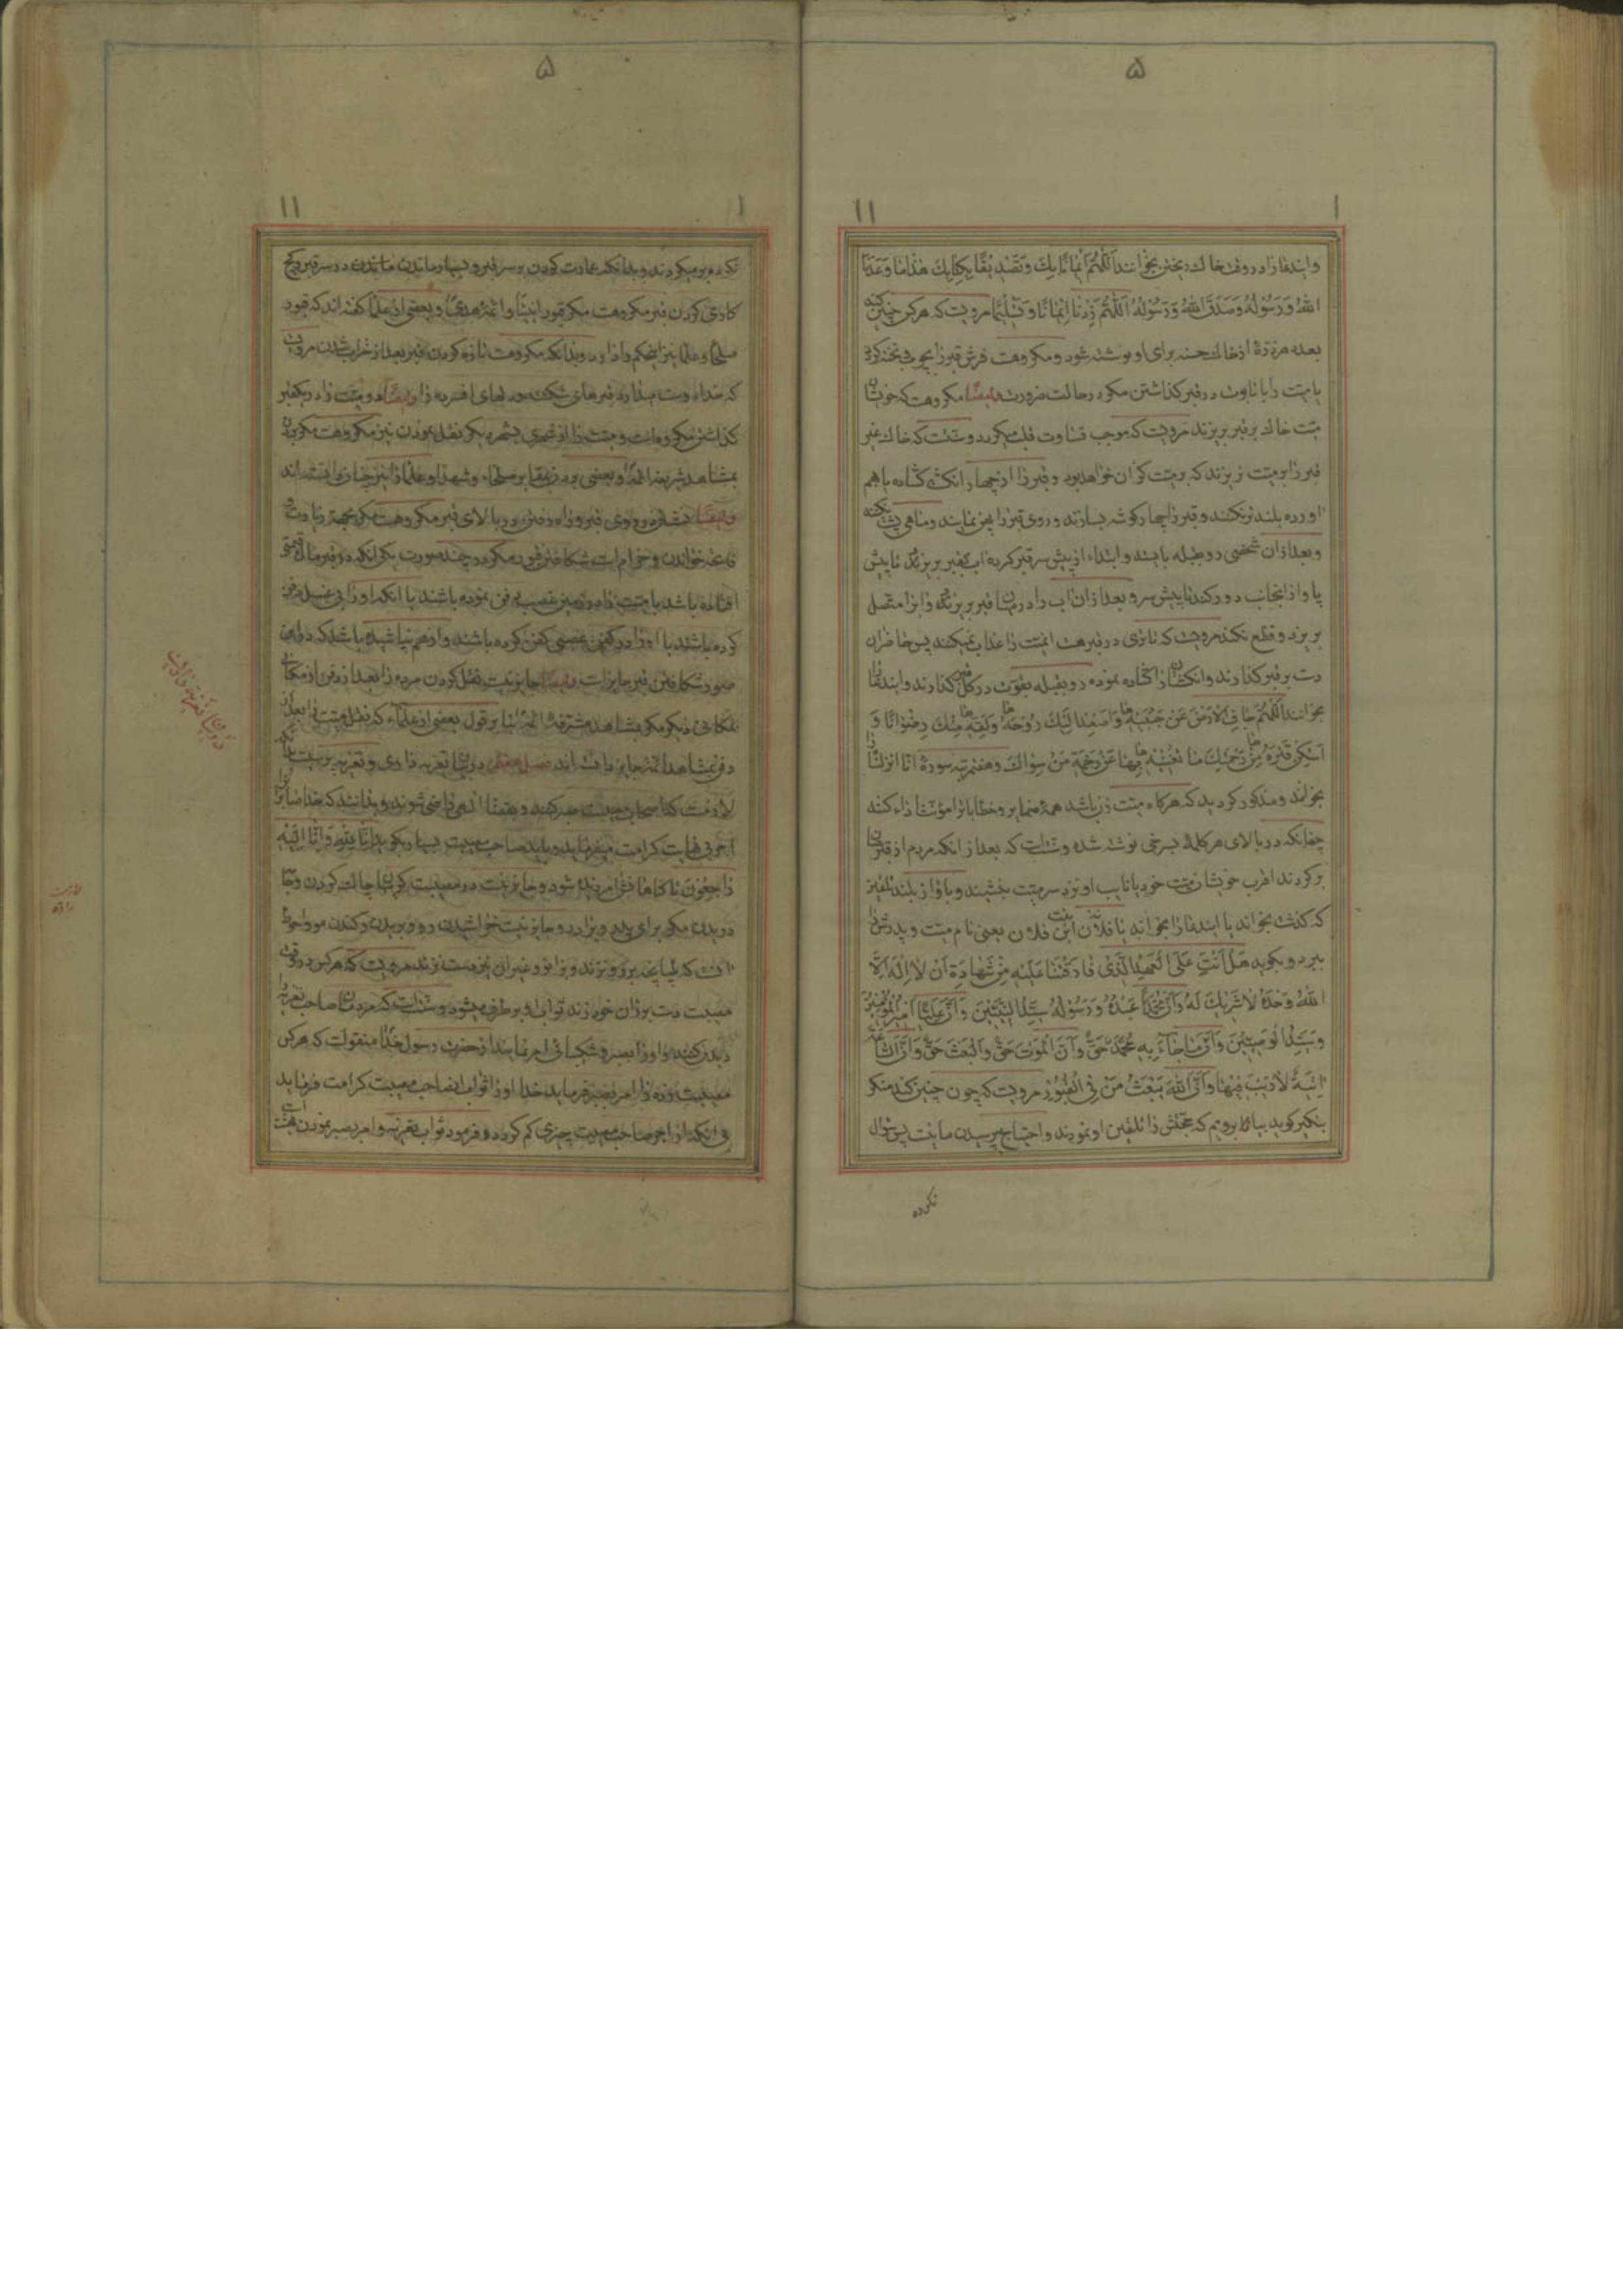 ۵
۱ ۱۱
و ایندعا را در وقت خاک ریختن بخوانند اَللّهُمَّ اِیمٰانًا بِکَ وَتَصْدِیقًا بِکِتٰابِکَ هٰذٰا مٰا وَعَدَنَا
اللهُ وَرَسُولُهُ وَصَدَقَ اللهُ وَرَسُولُهُ اَللّهُمَّ زِدْنٰا اِیمٰانًا وَتَسْلِیمًا مرویست که هر کس چنین کند
بعدد هر ذرۀ از خاک حسنه برای او نوشته شود و مکروهست فرش قبر را بچوب و تخته کردن
یا میت را با تابوت در قبر گذاشتن مگر در حالت ضرورت و ایضا مکروهست که خویشان
میت خاک بر قبر بریزند مرویست که موجب قساوت قلب میگردد و سنتست که خاک غیر
قبر را بر میت نریزند که بر میت گران خواهد بود و قبر را از چهار انگشت گشاده باهم
اورده بلندتر نکنند و قبر را چهار گوشه بسازند و روی قبر را پهن نمایند و ماهی پشت نکنند
و بعد از ان شخصی رو بقبله بایستد و ابتداء از پیش سر قبر کرده اب بقبر بریزد تا پیش
پا و از انجانب دور کند تا پیش سر و بعد از ان اب را در میان قبر بریزند و ابرا متصل
بریزد و قطع نکند مرویست که تا تری در قبر هست انمیت را عذاب نمیکنند پس حاضران
دست بر قبر گذارند و انگشتان را گشاده نموده رو بقبله بقوت در گل قبر گذارند و ایندعا را
بخوانند اَللّهُمَّ جٰافِ الْاَرْضَ عَنْ جَنْبَیْهِ وَاَصْعِدْ اِلَیْکَ رُوحَهُ وَلَقِّهِ مِنْکَ رِضْوٰانًا وَ
اَسْکِنْ قَبْرَهُ مِنْ رَحْمَتِکَ مٰا تُغْنِیهِ بِهٰا عَنْ رَحْمَةِ مَنْ سِوٰاکَ و هفت مرتبه سورۀ انا انزلناه را
بخواند و مذکور گردید که هر گاه میت زن باشد همۀ ضمایر و خطابات را مؤنث اداء کنند
چنانکه در بالای هر کلمۀ بسرخی نوشته شده و سنتست که بعد از انکه مردم از قبرستان
برگردند اقرب خویشان میت خود یا نایب او نزد سر میت بنشیند و باواز بلند تلقینی
که گذشت بخواند یا ایندعا را بخواند یا فلان ابن فلان یعنی نام میت و پدرش را
ببرد و بگوید هَلْ اَنْتَ عَلَی الْعَهْدِ الَّذِی فٰارَقْتَنٰا عَلَیْهِ مِنْ شَهٰادَةِ اَنْ لٰا اِلٰهَ اِلَّا
اللهُ وَحْدَهُ لٰا شَرِیکَ لَهُ وَاَنَّ مُحَمَّدًا عَبْدُهُ وَرَسُولُهُ سَیِّدُ النَّبِیِّینَ وَاَنَّ عَلِیًّا اَمِیرُ الْمُؤْمِنِینَ
وَسَیِّدُ الْوَصِیِّینَ وَاَنَّ مٰا جٰاءَ بِهِ مُحَمَّدٌ حَقٌّ وَاَنَّ الْمَوْتَ حَقٌّ وَالْبَعْثَ حَقٌّ وَاَنَّ السّٰاعَةَ
اٰتِیَةٌ لٰا رَیْبَ فِیهٰا وَاَنَّ اللهَ یَبْعَثُ مَنْ فِی الْقُبُورِ مرویست که چون چنین کند منکر
بنکیر گوید بیا تا برویم که حجتش را تلقین او نمودند و احتیاج بپرسیدن ما نیست پس سؤال
نکرده
۵
۱ ۱۱
نکرده برمیگردند و بدانکه عمارت کردن بر سر قبر و بسیار ماندن در سر قبر و گچ
کاری کردن قبر مکروهست مگر قبور انبیا و ائمۀ هدی و بعضی از علما گفته اند که قبور
صلحا و علما نیز اینحکم را دارد و بدانکه مکروهست تازه کردن قبر بعد از خراب شدن مرویست
که خدا دوست میدارد قبرهای شکسته و دلهای افسرده را و ایضا دو میت را در یکقبر
گذاشتن مکروهست و میت را از شهری بشهر دیگر نقل نمودن نیز مکروهست مگر بردن
بمشاهد شریفه ائمه و بعضی بردن بمقابر صلحاء و شهدا و علما را نیز جایز دانسته اند
و ایضا نشستن در روی قبر و راه رفتن در بالای قبر مکروهست مگر بجهة زیارت و
فاتحه خواندن و حرام است شکافتن قبور مگر در چند صورت یکی انکه در قبر مال قیمتی
افتاده باشد یا میت را در زمین غصب دفن نموده باشند یا انکه او را بی غسل دفن
کرده باشند یا او را در کفن غصبی کفن کرده باشند و از هم نپاشیده باشد که در این
صور شکافتن قبر جایز است و ایضا جایز نیست نقل کردن مرده را بعد از دفن از مکانی
بمکانی دیگر مگر بمشاهد مشرفۀ ائمه بنا بر قول بعضی از علماء که نقل میت را بعد از
دفن بمشاهد ائمه جایز دانسته اند فصل هفتم در بیان تعزیه داری و تعزیه پرسیست بدانکه
لازمست که اصحاب مصیبت صبر کنند و بقضای الهی راضی شوند و بدانند که خدا صابران را
اجر بی نهایت کرامت میفرماید و باید صاحب مصیبت بسیار بگوید اِنّٰا لِلّٰهِ وَاِنّٰا اِلَیْهِ
رٰاجِعُونَ تا گناهانش امرزیده شود و جایز نیست در مصیبت گریبان چاک کردن و جامه
دریدن مگر برای پدر و برادر و جایز نیست خراشیدن رو و بریدن و کندن مو و احوط
انست که طپانچه برو نزند و بزانو و غیر ان نیز دست نزند مرویست که هر کس در وقت
مصیبت دست بر ران خود زند ثواب او برطرف میشود و سنتست که مردمان صاحب تعزیه را
دیدن کنند و او را بصبر و شکیبائی امر نمایند از حضرت رسول خدا منقولست که هر کس
مصیبت زده را امر بصبر فرماید خدا او را ثواب صاحب مصیبت کرامت فرماید
بی انکه از اجر صاحب مصیبت چیزی کم گردد و فرمود ثواب تعزیه و امر بصبر نمودن بهشت است